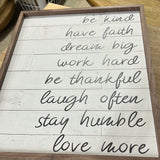 be kind
have faith
dream big
work hard
be thankful
laugh often
stay humble
love more